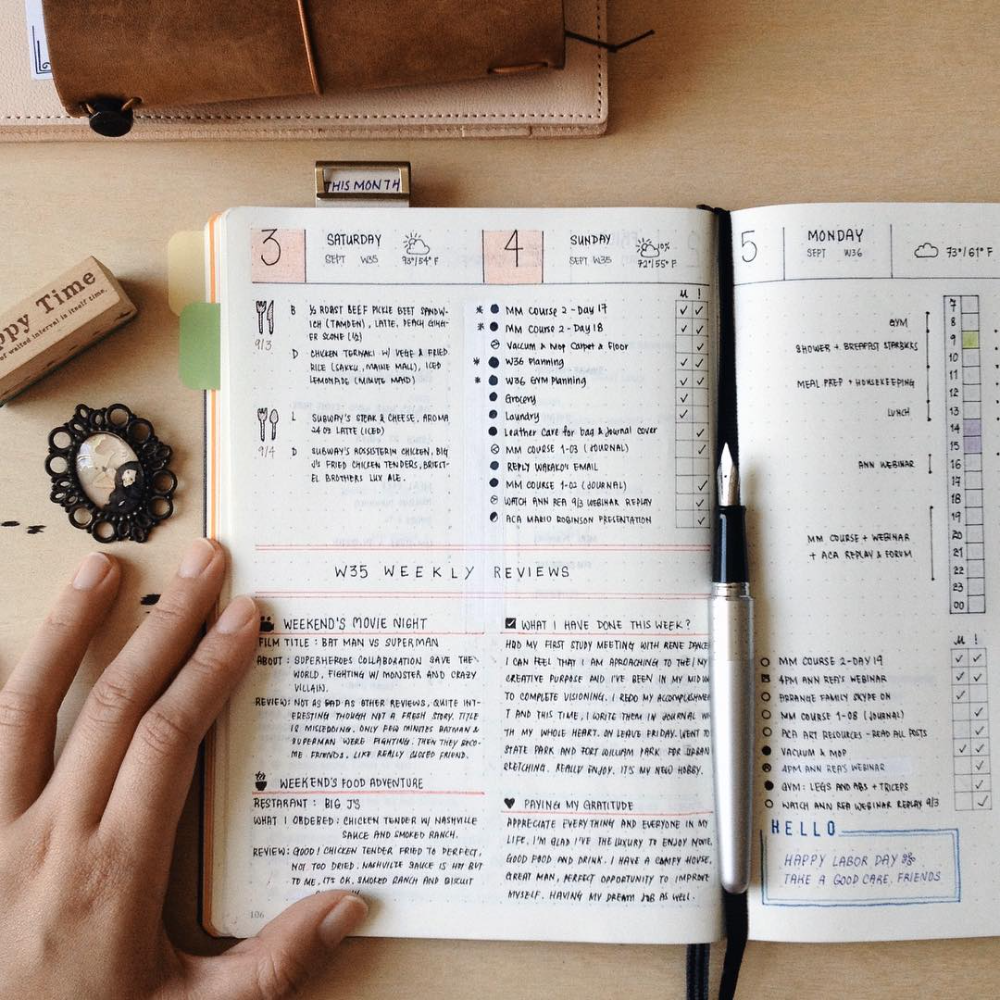 THIS MONTH
ppy Time
of waited interval is itself time.
3
SATURDAY
SEPT W35
93°/54° F
4
SUNDAY
SEPT W35
10%
72°/55° F
9/3
B ½ ROAST BEEF PICKLE BEET SANDW-
ICH (TAMDEN), LATTE, PEACH GING-
ER SCONE (½)
D CHICKEN TERIYAKI W/ VEGE & FRIED
RICE (SAKKU, MAINE MALL), ICED
LEMONADE (MINUTE MAID)
9/4
L SUBWAY'S STEAK & CHEESE, AROMA
24 OZ LATTE (ICED)
D SUBWAY'S ROSSISTERIN CHICKEN, BIG
J'S FRIED CHICKEN TENDERS, BRIEST-
EL BROTHERS LUX ALE.
M !
MM COURSE 2 - DAY 17
MM COURSE 2 - DAY 18
VACUUM & MOP CARPET & FLOOR
W36 PLANNING
W36 GYM PLANNING
GROCERY
LAUNDRY
LEATHER CARE FOR BAG & JOURNAL COVER
MM COURSE 1-03 (JOURNAL)
REPLY WAKAKO'S EMAIL
MM COURSE 1-02 (JOURNAL)
WATCH ANN REA 9/3 WEBINAR REPLAY
ACA MARIO ROBINSON PRESENTATION
W35 WEEKLY REVIEWS
WEEKEND'S MOVIE NIGHT
FILM TITLE : BAT MAN VS SUPERMAN
ABOUT : SUPERHEROES COLLABORATION SAVE THE
WORLD, FIGHTING W/ MONSTER AND CRAZY
VILLAIN.
REVIEW: NOT AS BAD AS OTHER REVIEWS, QUITE INT-
ERESTING THOUGH NOT A FRESH STORY. TITLE
IS MISLEDING. ONLY FEW MINUTES BATMAN &
SUPERMAN WERE FIGHTING. THEN THEY BECO-
ME FRIENDS, LIKE REALLY CLOSED FRIEND.
WEEKEND'S FOOD ADVENTURE
RESTARANT : BIG J'S
WHAT I OBDERED : CHICKEN TENDER W/ NASHVILLE
SAUCE AND SMOKED RANCH.
REVIEW: GOOD! CHICKEN TENDER FRIED TO PERFECT,
NOT TOO DRIED. NASHVILLE SAUCE IS HOT BUT
TO ME, IT'S OK. SMOKED RANCH AND BISCUIT
106
WHAT I HAVE DONE THIS WEEK?
HAD MY FIRST STUDY MEETING WITH RENE
I CAN FEEL THAT I AM APROACHING TO THE MY
CREATIVE PURPOSE AND I'VE BEEN IN MY MID
TO COMPLETE VISIONING. I REDO MY ACCOMPLISHMEN
T AND THIS TIME, I WRITE THEM IN JOURNAL WI
TH MY WHOLE HEART. ON LEAVE FRIDAY. WENT TO
STATE PARK AND FORT WILLIAM PARK FOR URBAN
SKETCHING. REALLY ENJOY. IT'S MY NEW HOBBY.
PAYING MY GRATITUDE
APPRECIATE EVERYTHING AND EVERYONE IN MY
LIFE. I'M GLAD I'VE THE LUXURY TO ENJOY MOVIE,
GOOD FOOD AND DRINK. I HAVE A CAMPY HOUSE,
GREAT MAN, PERFECT OPPORTUNITY TO IMPROVE
MYSELF. HAVING MY DREAM JOB AS WELL.
5
MONDAY
SEPT W36
73°/61° F
GYM
SHOWER + BREAKFAST STARBUCKS
MEAL PREP + HOUSEKEEPING
LUNCH
ANN WEBINAR
MM COURSE + WEBINAR
+ ACA REPLAY & FORUM
7
8
9
10
11
12
13
14
15
16
17
18
19
20
21
22
23
00
M !
MM COURSE 2-DAY 19
4PM ANN REA'S WEBINAR
ARRANGE FAMILY SKYPE ON
MM COURSE 1-08 (JOURNAL)
ACA ART RESOURCES - READ ALL POSTS
VACUUM & MOP
4PM ANN REA'S WEBINAR
GYM : LEGS AND ABS + TRICEPS
WATCH ANN REA WEBINAR REPLAY 9/3
HELLO
HAPPY LABOR DAY
TAKE A GOOD CARE, FRIENDS